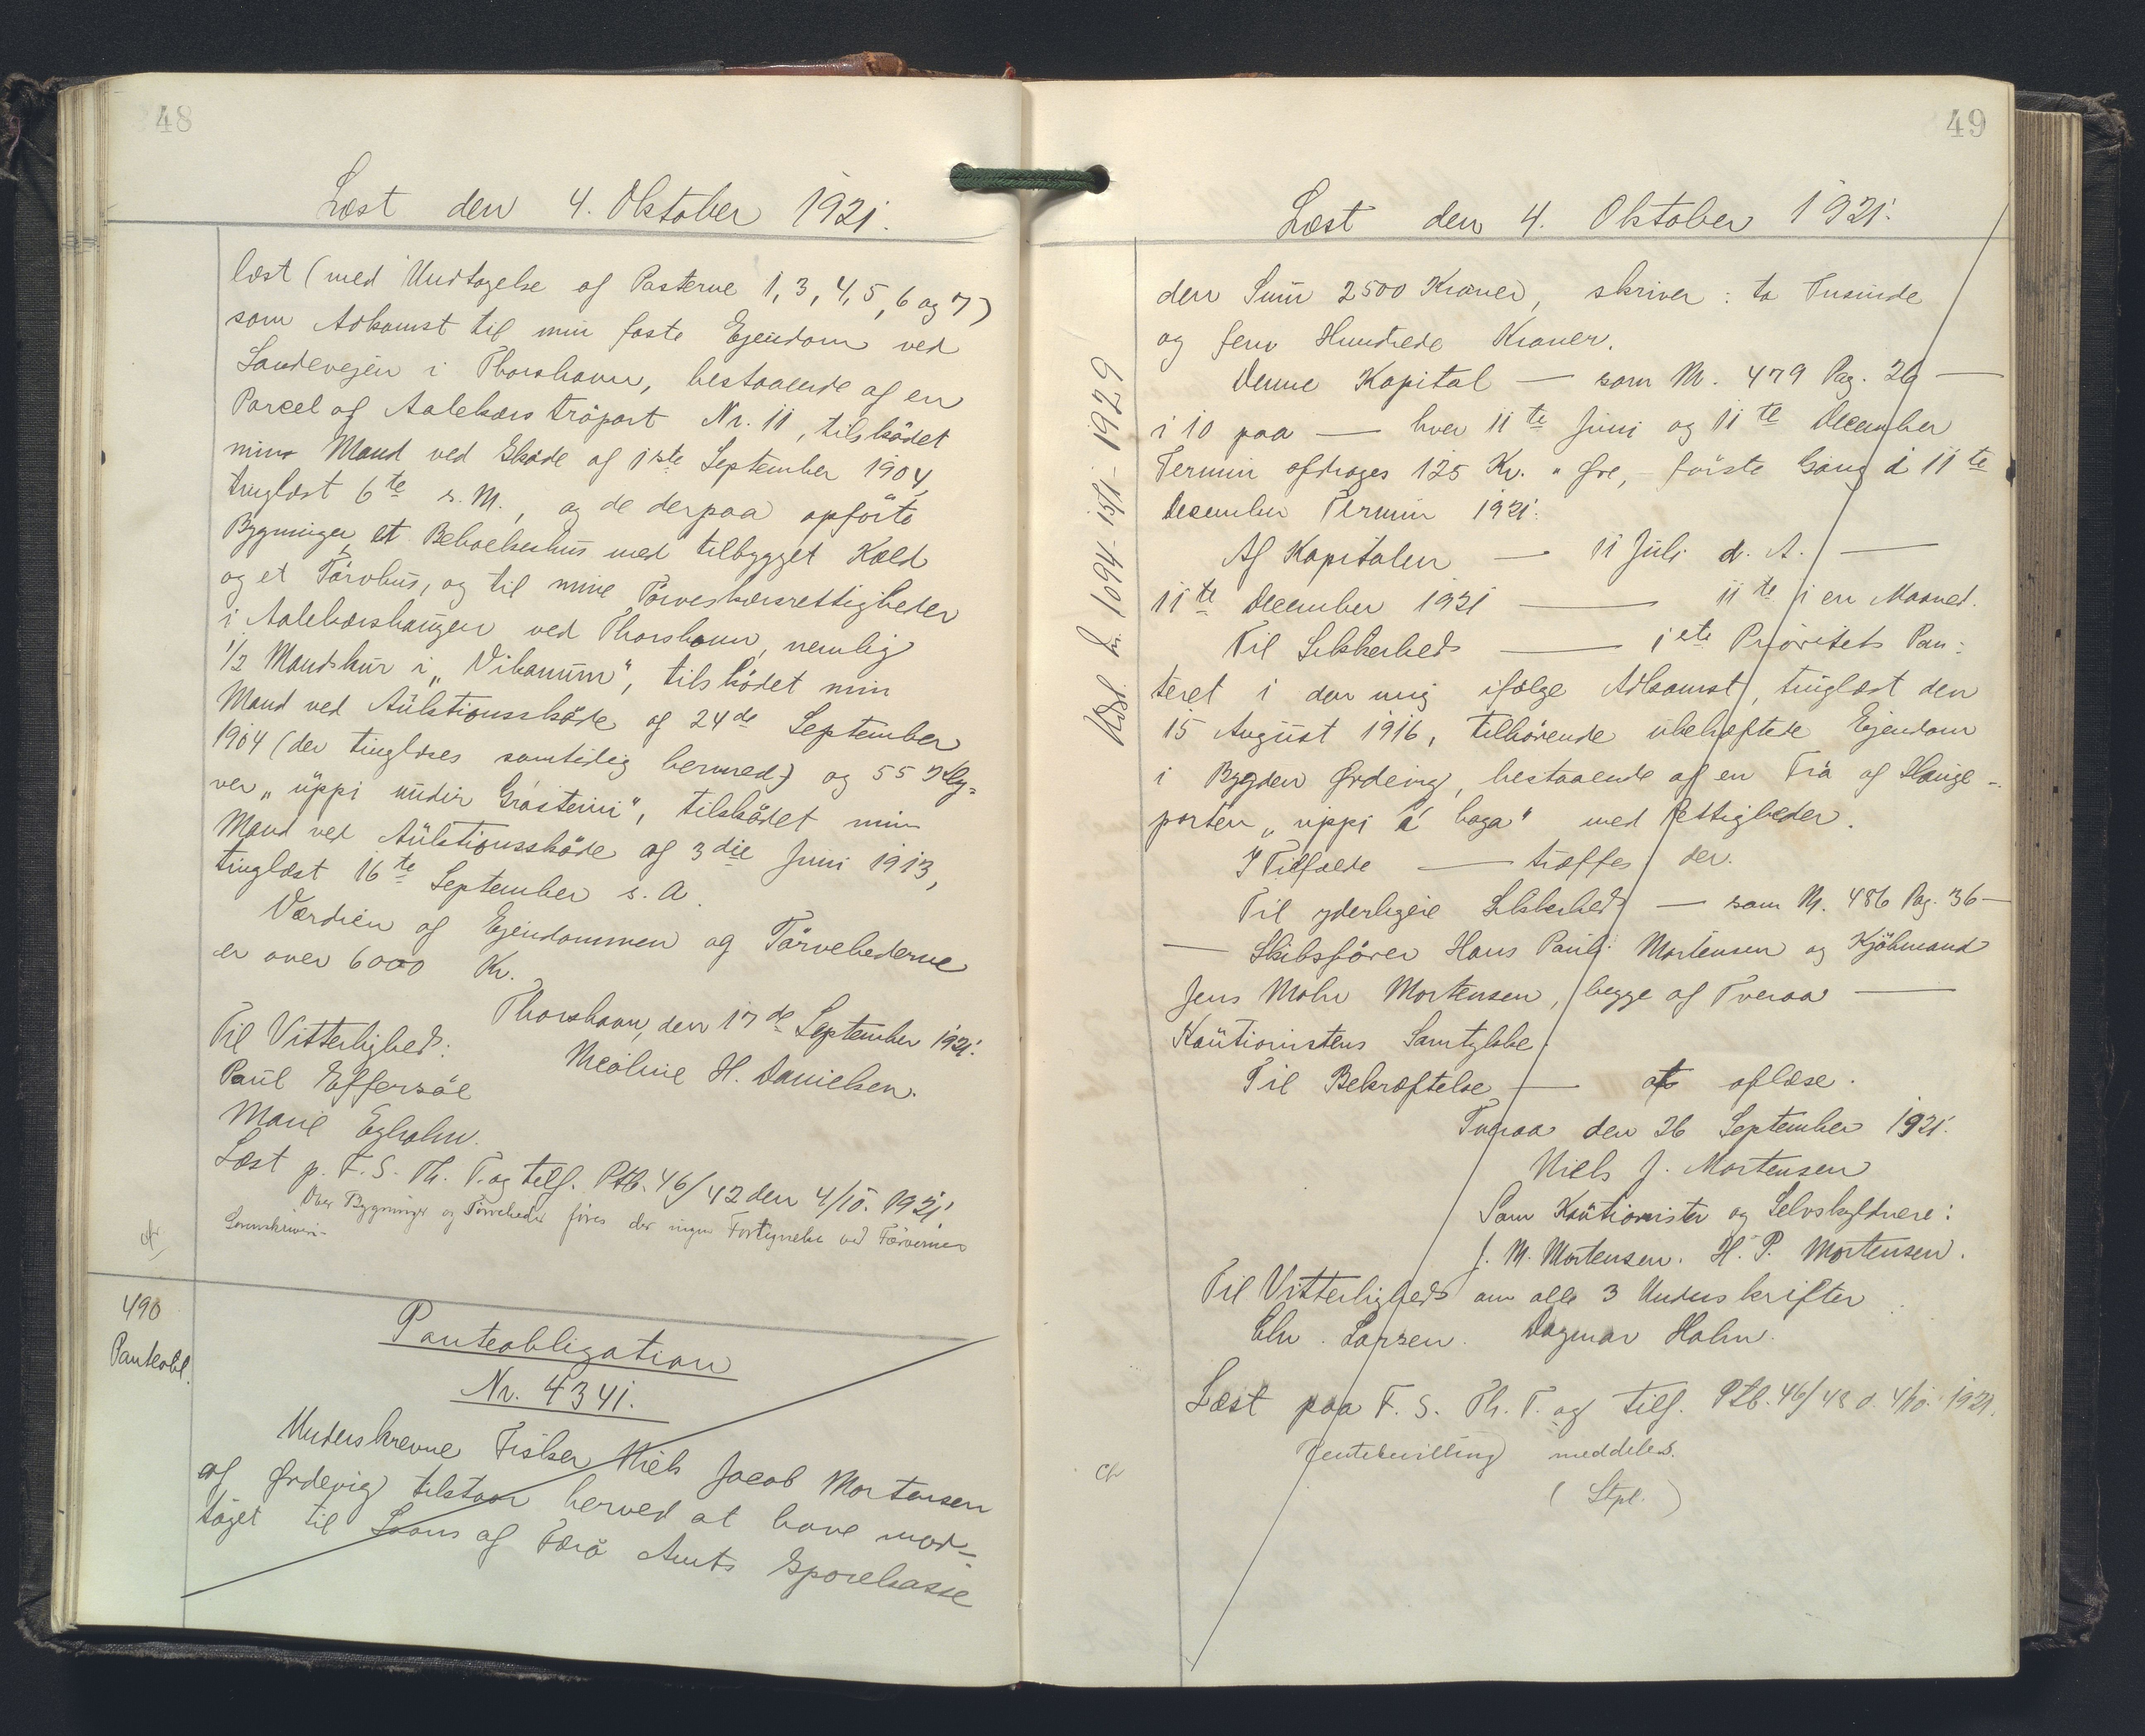 48
Læst den 4. Oktober 1921.
læst (med Undtagelse af Posterne 1, 3, 4, 5, 6 og 7)
som Adkomst til min faste Ejendom ved
Landevejen i Thorshavn, bestaaende af en
Parcel af Aalekærs tröpart Nr. 11, tilsködet
min Mand ved Skøde af 1ste September 1904,
tinglæst 6te s. M., og de derpaa opförte
Bygninger, et Beboelseshus med tilbygget Kæld
og et Törvhus, og til mine Törveskærsrettigheder
i Aalekærshaugen ved Thorshavn, nemlig
1/2 Mandskur i „Vikanum", tilsködet min
Mand ved Auktionsskøde af 24de September
1904 (der tinglæses samtidig hermed) og 55 Klÿ-
ver „uppi undir Grásteini", tilsködet min
Mand ved Auktionsskøde af 3die Juni 1913,
tinglæst 16te September s. A.
Værdien af Ejendommen og Törvehederne
er over 6000 Kr.
Thorshavn, den 17de September 1921.
Til Vitterlighed: Nicoline H. Danielsen.
Paul Effersöe
Marie Egholm.
Læst p. F. S. Th. T. og tilf. Ptb. 46/42 den 4/10. 1921.
Over Bygninger og Törveheder föres der ingen Fortegnelse ved Færøernes
Sorenskriveri-
490
Panteobl.
Panteobligation
Nr. 4341.
Underskrevne Fisker Niels Jacob Mortensen
af Ørdevig tilstaar herved at have mod-
taget til Laans af Færö Amts Sparekasse
49
Læst den 4. Oktober 1921.
Udsl. Nr. 1094 - 15/1 - 1929
den Sum 2500 Kroner, skriver: to Tusinde
og fem Hundrede Kroner.
Denne Kapital — som Nr. 479 Pag. 26 —
i 10 paa — hver 11te Juni og 11te December
Termin afdrages 125 Kr. " Øre, - förste Gang i 11te
December Termin 1921.
Af Kapitalen — 11 Juli d. A. —
11te December 1921 — 11te i en Maaned.
Til Sikkerhed — 1ste Prioritets Pan-
teret i den mig ifölge Adkomst, tinglæst den
15 August 1916, tilhörende ubehæftede Ejendom
i Bygden Ørdevig, bestaaende af en Trö af Hauge-
parten „uppi á haga" med Rettigheder.
I Tilfælde — træffes der.
Til yderligere Sikkerhed — som Nr. 486 Pag. 36 —
— Skibsförer Hans Pauli Mortensen og Kjöbmand
Jens Mohr Mortensen, begge af Tveraa —
Kautionistens Samtykke
Til Bekræftelse — at aflæse.
Tveraa den 26 September 1921.
Niels J. Mortensen
Som Kautionister og Selvskyldnere:
J. M. Mortensen. H. P. Mortensen.
Til Vitterlighed om alle 3 Underskrifter
Chr. Larsen. Dagmar Holm.
Læst paa F. S. Th. T. og tilf. Ptb. 46/48 d. 4/10. 1921.
Rentebevilling meddeles.
(Stpl.)